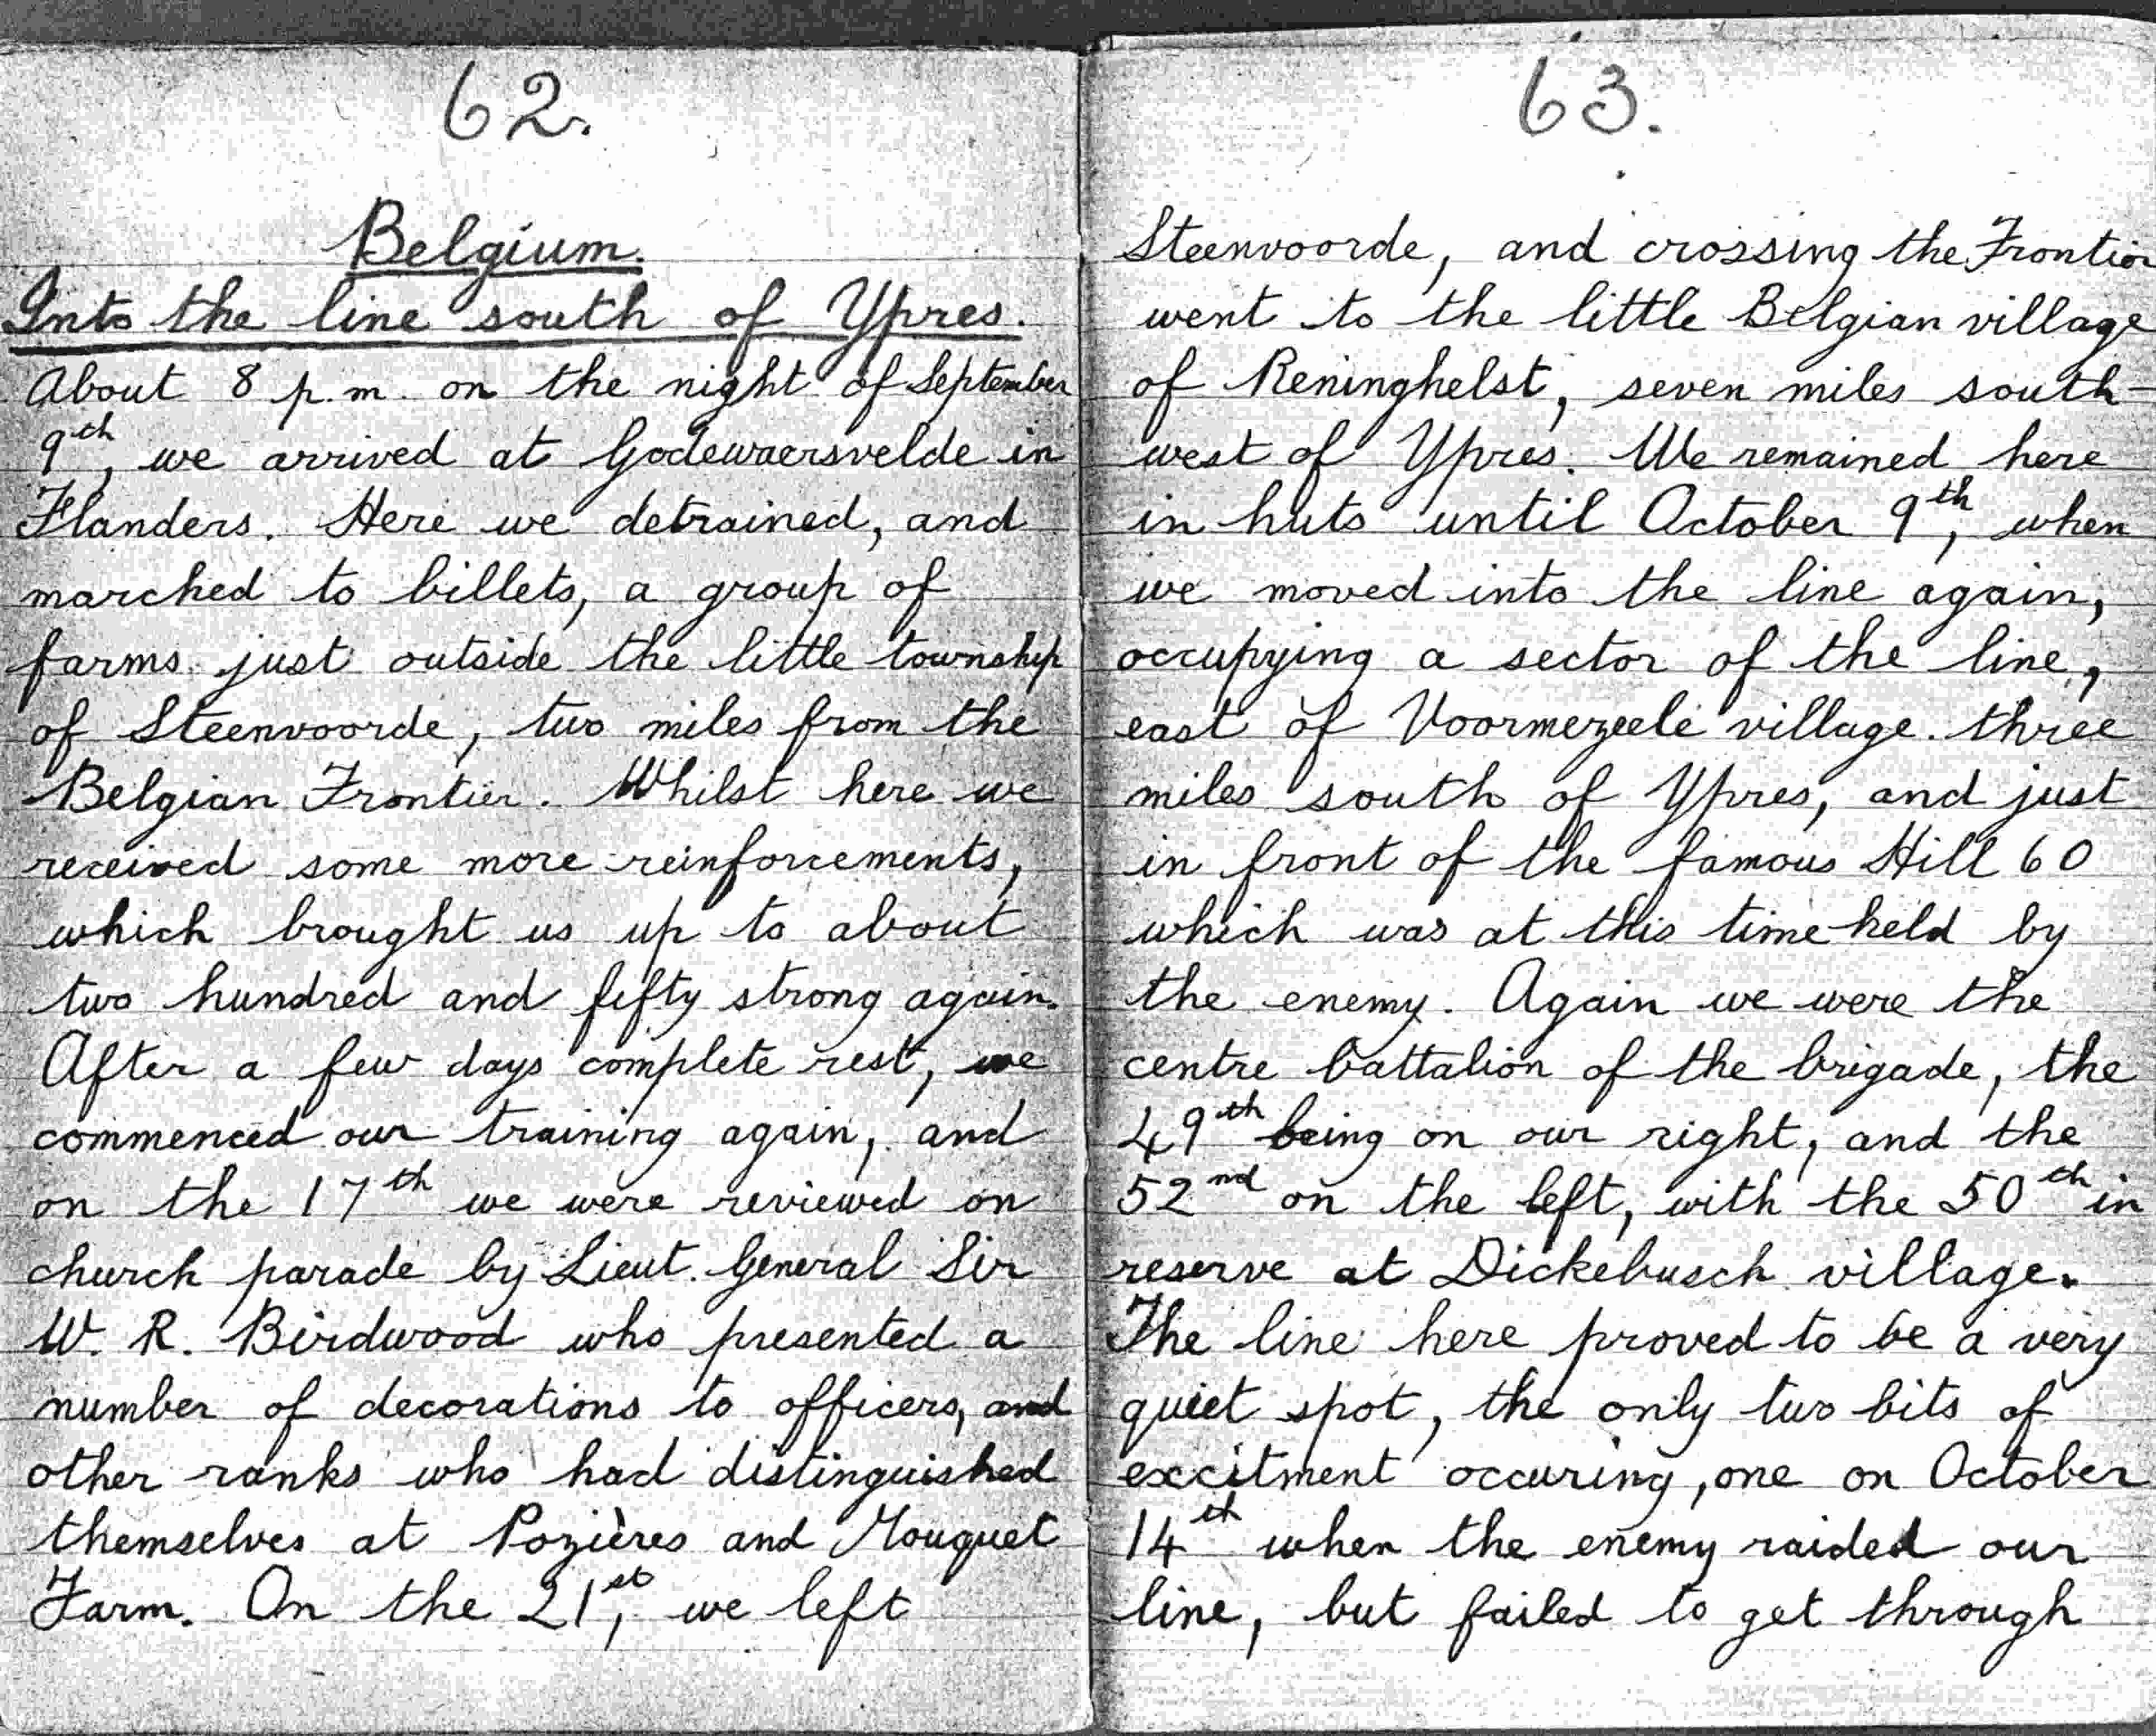 62.
Belgium.
Into the line south of Ypres.
About 8 p.m. on the night of September
9th, we arrived at Godewaersvelde in
Flanders. Here we detrained, and
marched to billets, a group of
farms just outside the little township
of Steenvoorde, two miles from the
Belgian Frontier. Whilst here we
received some more reinforcements,
which brought us up to about
two hundred and fifty strong again.
After a few days complete rest, we
commenced our training again, and
on the 17th we were reviewed on
church parade by Lieut. General Sir
W. R. Birdwood who presented a
number of decorations to officers, and
other ranks who had distinguished
themselves at Pozières and Mouquet
Farm. On the 21st, we left
63.
Steenvoorde, and crossing the Frontier
went to the little Belgian village
of Reninghelst, seven miles south-
west of Ypres. We remained here
in huts until October 9th, when
we moved into the line again,
occupying a sector of the line,
east of Voormezeele village. three
miles south of Ypres, and just
in front of the famous Hill 60
which was at this time held by
the enemy. Again we were the
centre battalion of the brigade, the
49th being on our right, and the
52nd on the left, with the 50th in
reserve at Dickebusch village.
The line here proved to be a very
quiet spot, the only two bits of
excitment occuring, one on October
14th when the enemy raided our
line, but failed to get through